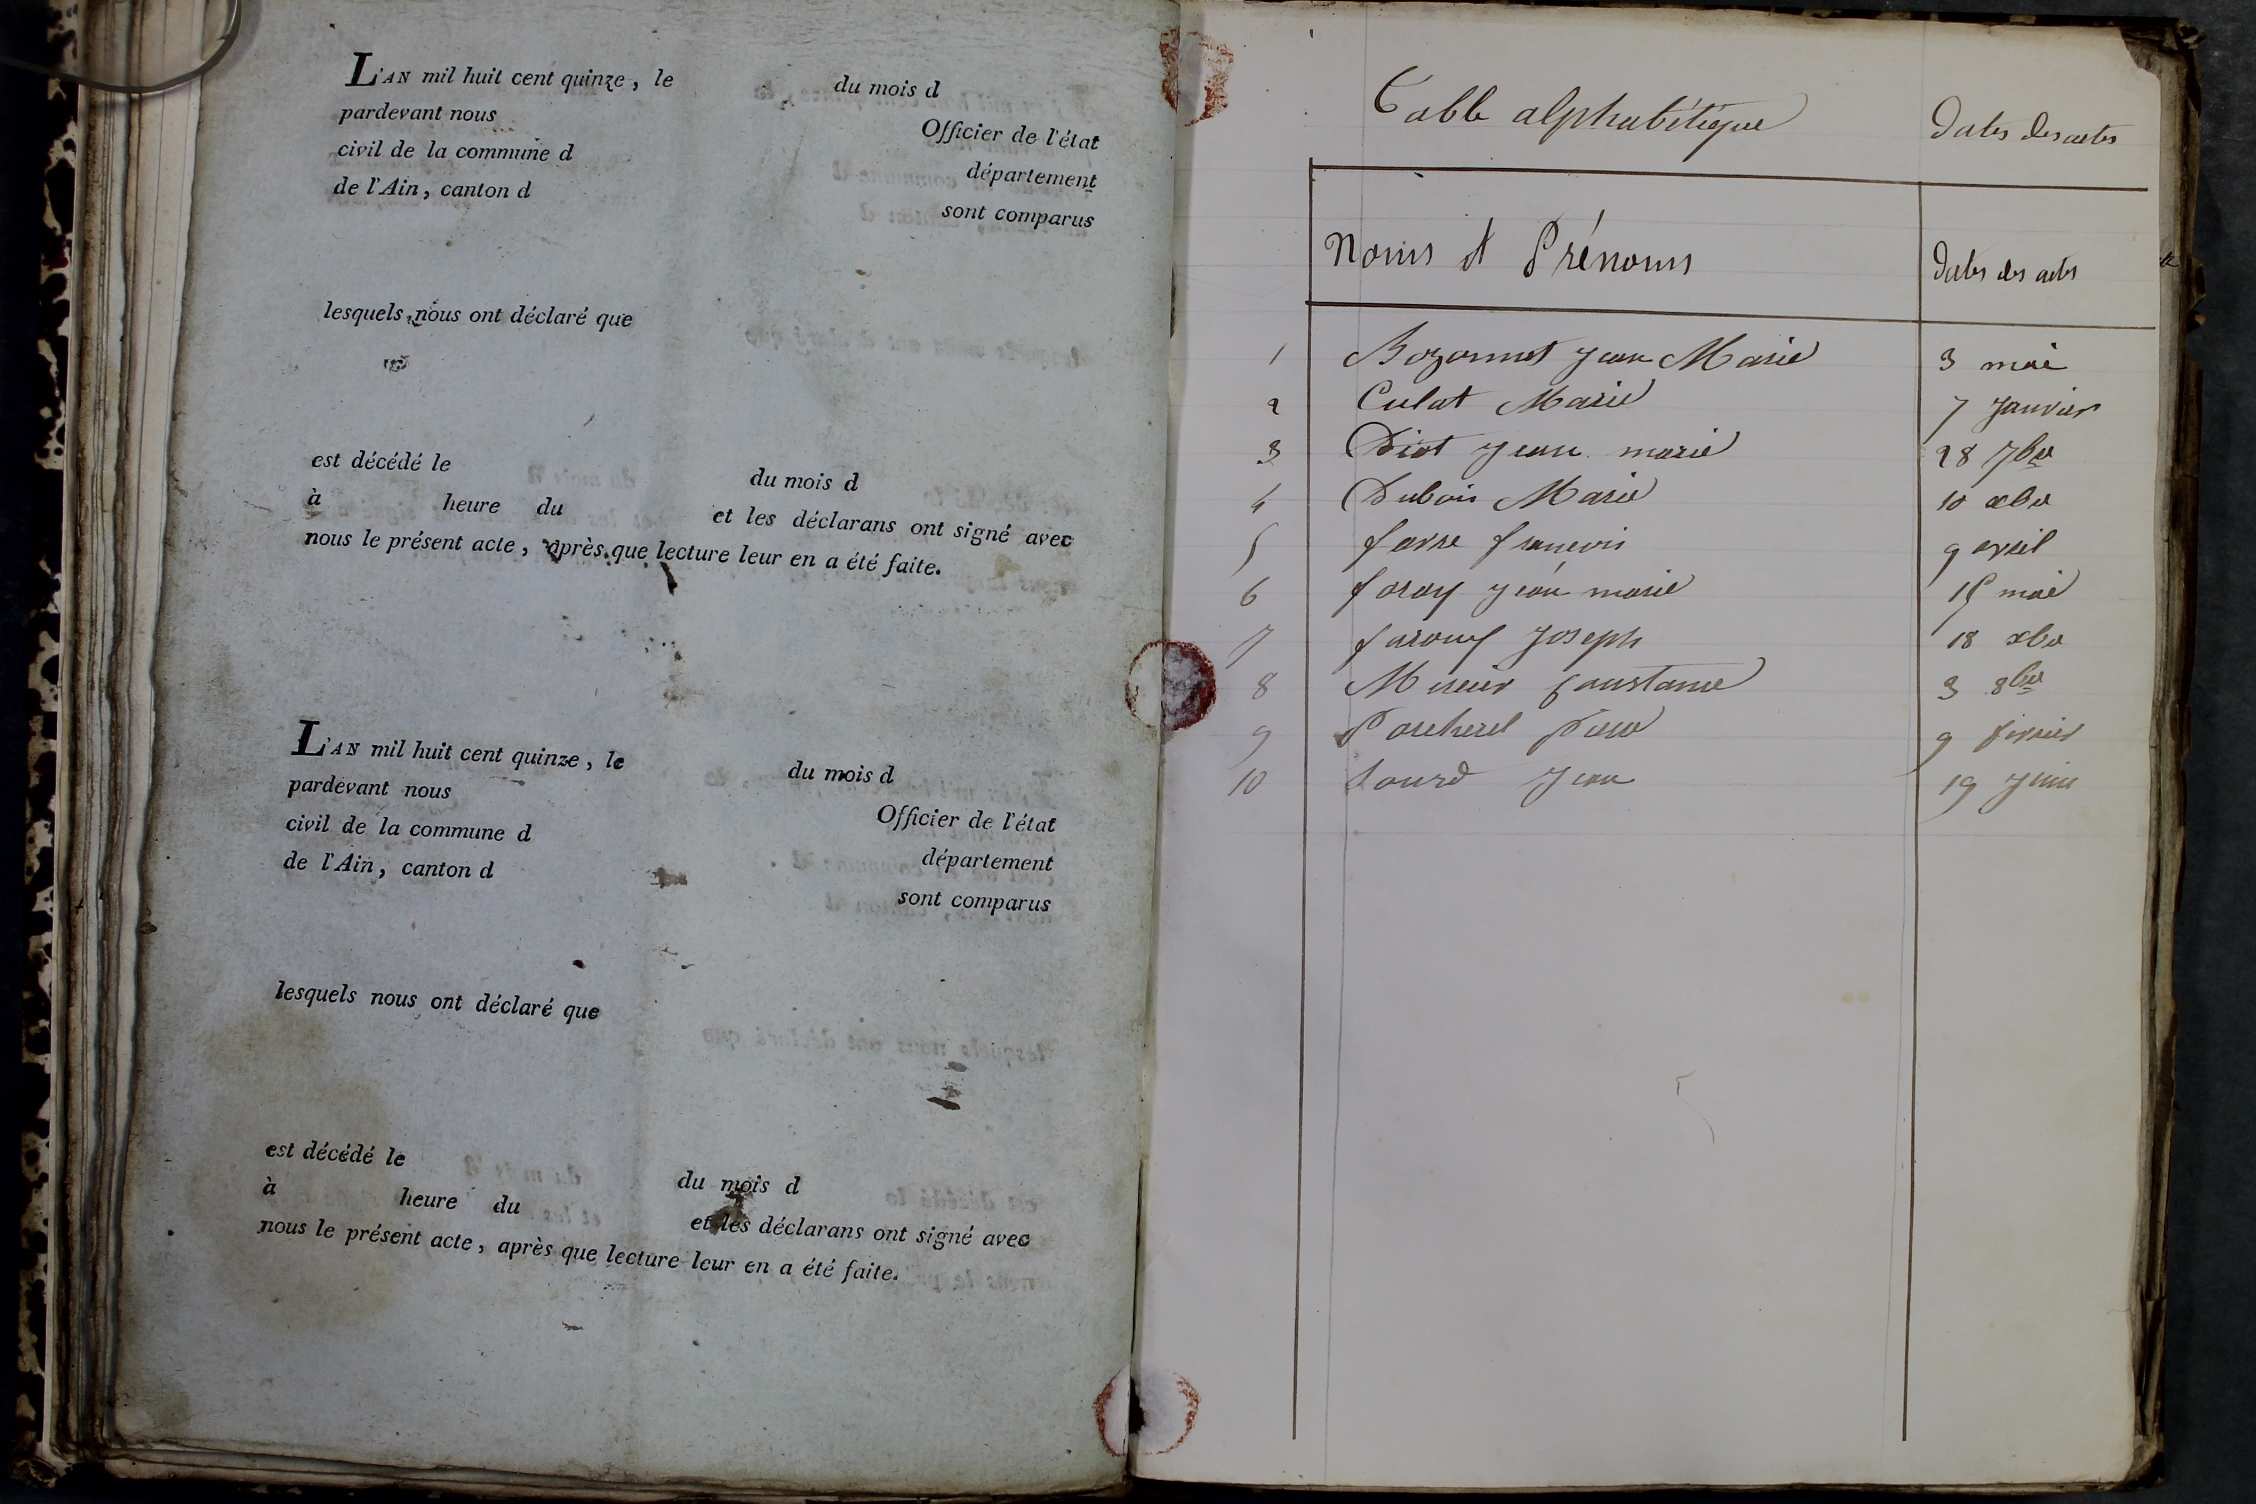 L'AN mil huit cent quinze, le du mois d
pardevant nous Officier de l'état
civil de la commune d département
de l'Ain, canton d sont comparus
lesquels nous ont déclaré que
est décédé le du mois d
à heure du et les déclarans ont signé avec
nous le présent acte, après que lecture leur en a été faite.
L'AN mil huit cent quinze, le du mois d
pardevant nous Officier de l'état
civil de la commune d département
de l'Ain, canton d sont comparus
lesquels nous ont déclaré que
est décédé le du mois d
à heure du et les déclarans ont signé avec
nous le présent acte, après que lecture leur en a été faite.
Table alphabétique Dates des actes
Noms et Prénoms Dates des actes
1 Bozonnet Jean Marie 3 mai
2 Culat Marie 7 Janvier
3 Diot Jean marie 28 7bre
4 Dubois Marie 10 xbre
5 favre francois 9 avril
6 faray Jean marie 15 mai
7 Joseph 18 xbre
8 Constance 3 8bre
9 Porcherel 9 fevrier
10 Sourd Jean 19 Juin